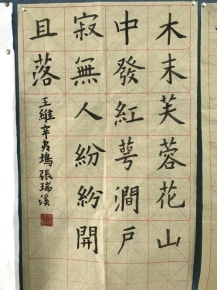 木末芙蓉花山
中發紅萼澗戶
寂無人紛紛開
且落
王維辛夷塢張瑞溪